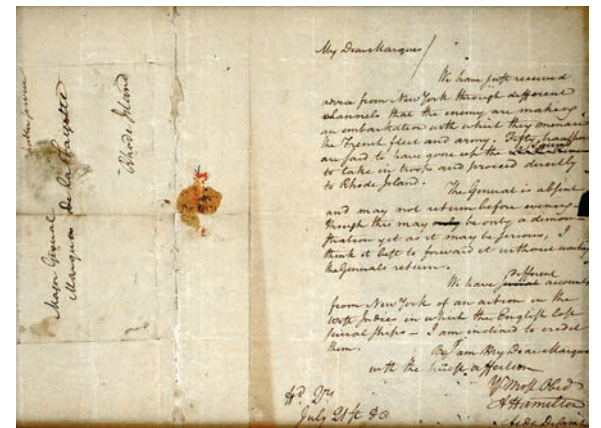 Major General
Marquis de la Fayette
Rhode Island
My Dear Marquis/
We have just received
advice from New York through different
channels that the enemy are making
an embarkation with which they menace
the French fleet and army. Fifty transports
are said to have gone up the Sound
to take in troops and proceed directly
to Rhode Island.
The General is absent
and may not return before evening.
Though this may only be only a demon-
stration yet as it may be serious, I
think it best to forward it without waiting
the Generals return.
different
We have serial accounts
from New York of an action in the
West Indies in which the English lost
several ships – I am inclined to credit
them.
I am My Dear Marquis
with the truest affection
Yr Most Obed
A Hamilton
Aide De Camp
Hd Qrs
July 21st 80